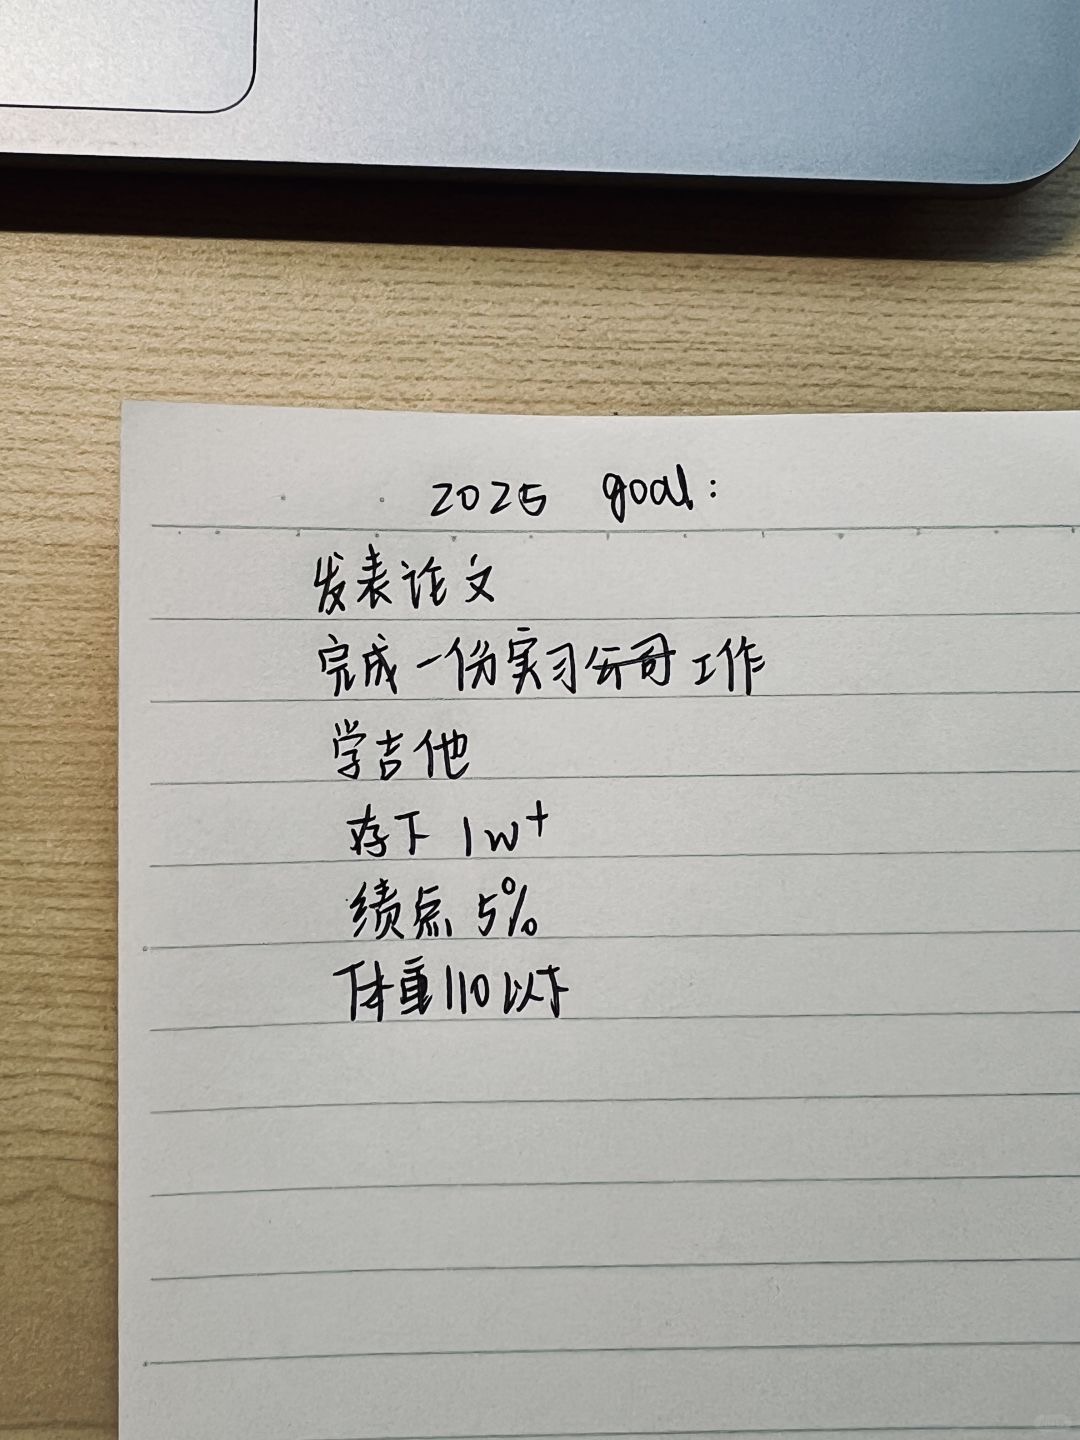 2025 goal:
发表论文
完成一份实习公司工作
学吉他
存下 1w+
绩点 5%
体重110以下